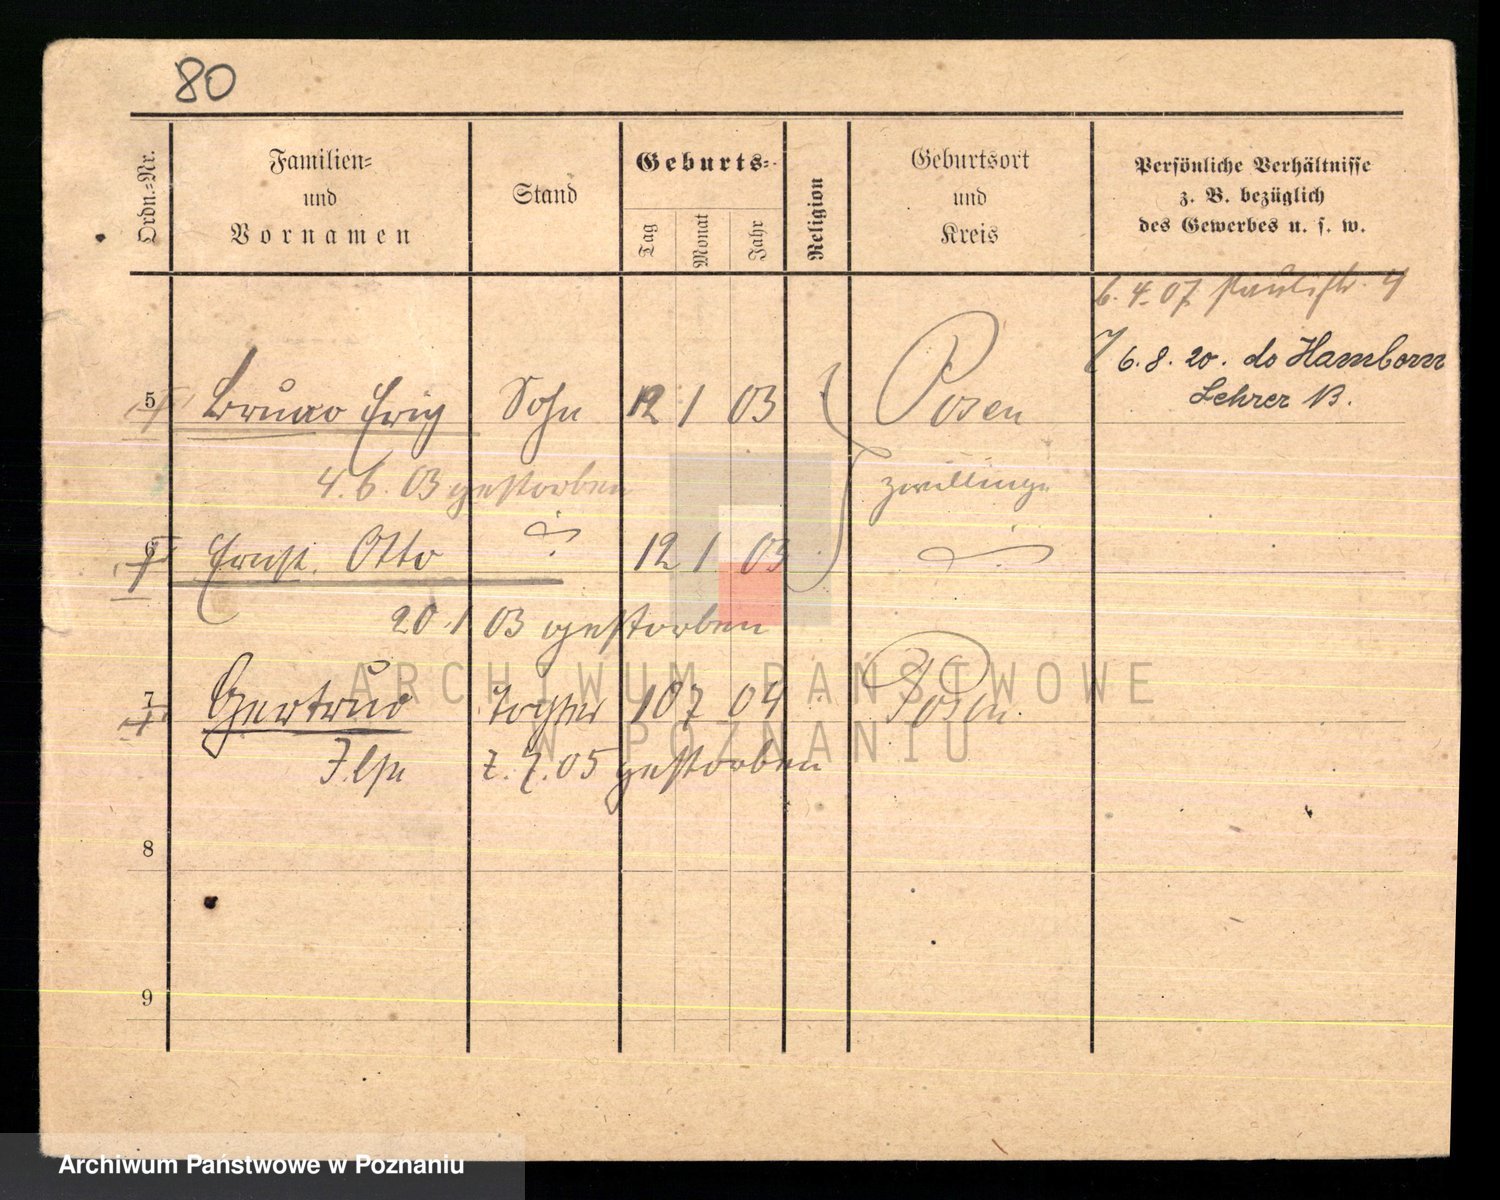 80
Ordn.-Nr.
Familien-
und
Vornamen
Stand
Geburts-
Tag
Monat
Jahr
Religion
Geburtsort
und
Kreis
Persönliche Verhältnisse
z. B. bezüglich
des Gewerbes u. s. w.
6. 4. 07 Paulistr. 4
6. 8. 20. do Hamborn
Lehrer B.
5 Bruno Erich Sohn 12 1 03 Posen
4. 6. 03 gestorben Zwillinge
6 Ernst. Otto 12 1 03
20. 1 03 gestorben
7 Gertrud Tochter 10 7 04 Posen
Ilse 7. 7. 05 gestorben
8
9
ARCHIWUM PAŃSTWOWE
W POZNANIU
Archiwum Państwowe w Poznaniu